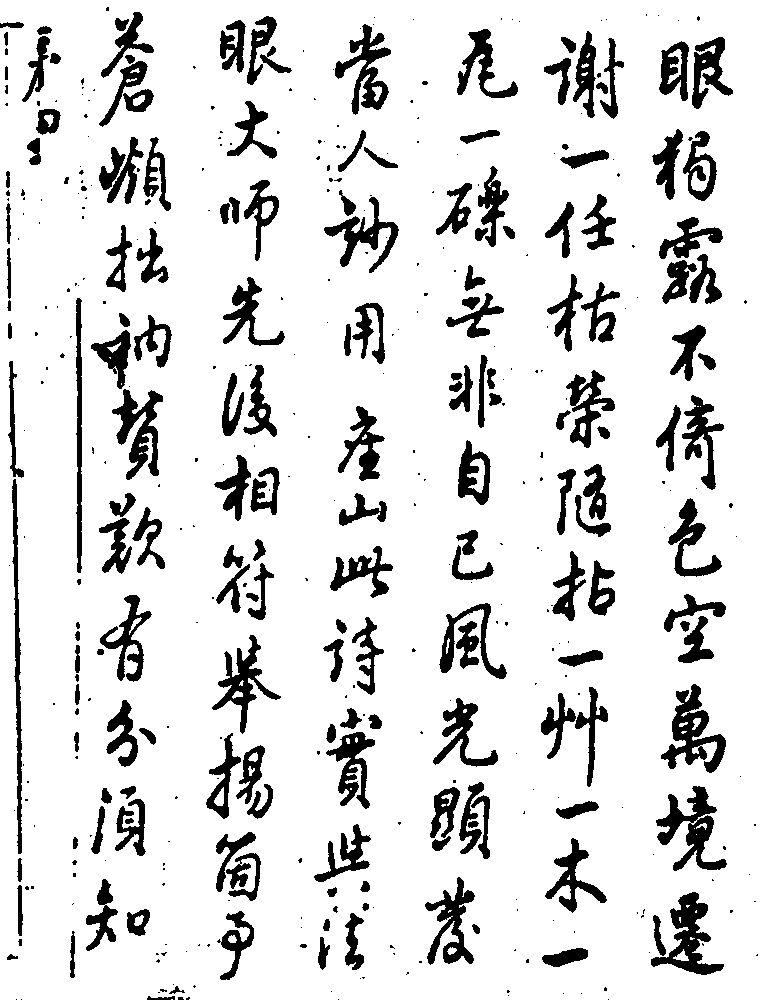 眼獨露不倚色空萬境遷
謝一任枯榮隨拈一艸一木一
尾一礫無非自己風光顯發
當人玅用座山此詩實與法
眼大師先後相符舉揚箇事
蒼巘拙衲贊歎有分須知